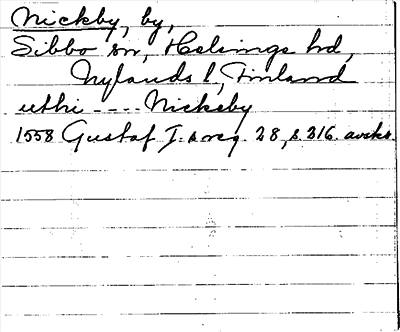 Nickby, by,
Sibbo sn, Helsinge hd,
Nylands l, Finland
uthi ---- Nickeby
1558 Gustaf I:s reg. 28, s. 316. avskr.